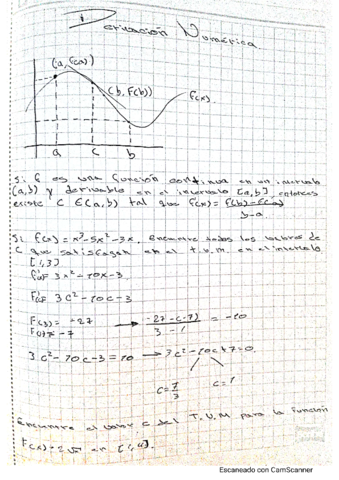 Derivación Numérica
(a, f(a))
(b, F(b))
f(x)
a c b
Si f es una función continua en un intervalo
(a,b) y derivable en el intervalo [a,b] entonces
existe C E(a,b) tal que f(x)= f(b)-f(a)
b-a
Si f(x)=x³-5x²-3x. Encuentre todos los valores de
C que satisfagan en el t.v.m. en el intervalo
[1,3]
3x²-10x-3.
3c²-10c-3
F(3)= -27
F(1)= -7
-27-(-7)
3-1
= -10
3c²-10c-3=10 → 3c²-10c+7=0.
c=7/3
c=1
Encuentre el valor c del T.V.M para la función
F(x)=2√x en [1,4].
Escaneado con CamScanner